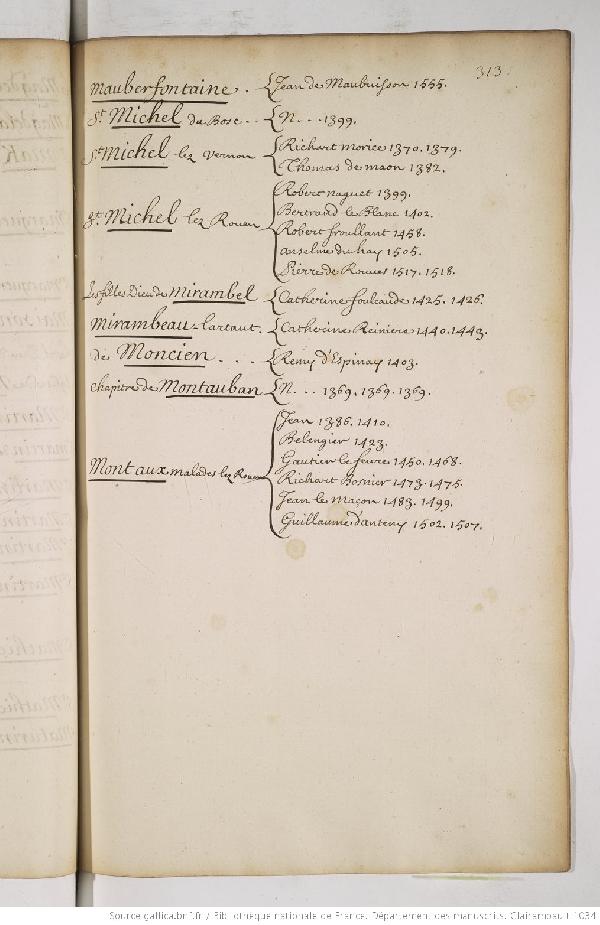 313.
Mauberfontaine . . { Jean de Maubuisson 1555.
St. Michel du Bosc . . { N. . . . 1399.
St. Michel lez Vernon { Richart morice 1370. 1379.
Thomas de maon 1382.
St. Michel lez Rouen { Robert naguet 1399.
Bertrand le Blanc 1402.
Robert froullant 1458.
anselme du hay 1505.
Pierre de Rouves 1517. 1518.
les filles Dieu de Mirambel { Catherine foulcaude 1425. 1426.
Mirambeau lartaut. { Catherine Reiniere 1440. 1443.
de Moncien . . . . { Remy d'Espinay 1403.
Chapitre de Montauban { N. . . . 1369. 1369. 1369.
Mont aux malades lez Rouen { Jean 1386. 1410.
Belengier 1423.
Gautier le feivre 1450. 1468.
Richart Bosnier 1473. 1475.
Jean le Maçon 1483. 1499.
Guillaume d'anteny 1502. 1507.
Source gallica.bnf.fr / Bibliothèque nationale de France. Département des manuscrits. Clairambault 1034